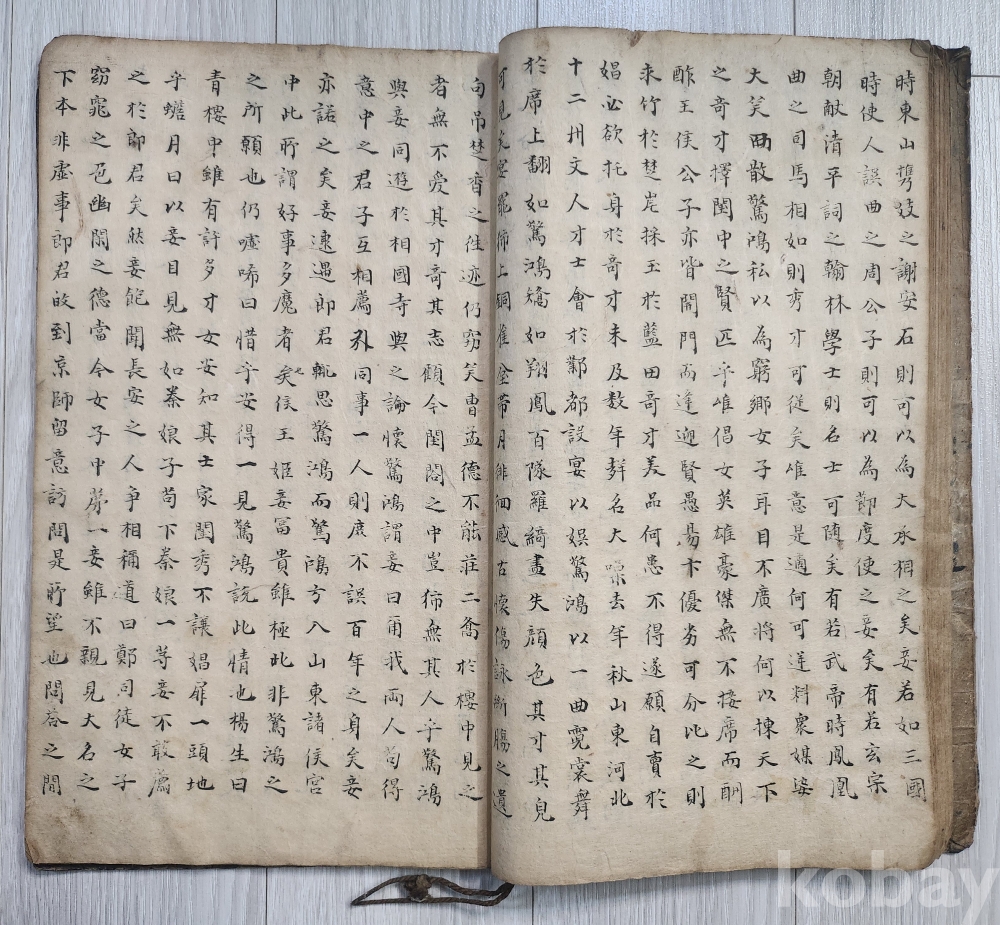 時東山携妓之謝安石則可以為大承相之矣妾若如三國
時使人誤曲之周公子則可以為節度使之妾矣有若玄宗
朝献清平詞之翰林學士則名士可隨矣有若武帝時鳳凰
曲之司馬相如則秀才可從矣唯意是適何可逆料衆媒婆
大笑而散驚鴻私以為窮鄉女子耳目不廣將何以揀天下
之奇才擇閨中之賢匹乎唯倡女英雄豪傑無不接席而酬
酢王侯公子亦皆開門而逢迎賢愚易卞優劣可分比之則
求竹於楚岸採玉於藍田奇才美品何患不得遂願自賣於
娼必欲托身於奇才未及数年聲名大噪去年秋山東河北
十二州文人才士會於鄴都設宴以娛驚鴻以一曲霓裳舞
於席上翩如驚鴻矯如翔鳳百隊羅綺盡失顔色其才其皃
可見矣宴罷獨上銅雀臺帶月徘徊感古懷傷詠斷腸之遺
句吊楚香之徃迹仍窃笑曹孟德不能莊二喬於樓中見之
者無不愛其才奇其志顧今閨閤之中豈獨無其人乎驚鴻
與妾同遊於相國寺與之論懷驚鴻謂妾曰甭我両人苟得
意中之君子互相薦引同事一人則庶不誤百年之身矣妾
亦諾之矣妾逮遇郎君輒思驚鴻而驚鴻方入山東諸侯宮
中此所謂好事多魔者矣侯王姬妾冨貴雖極此非驚鴻之
之所願也仍噓唏曰惜乎安得一見驚鴻説此情也楊生曰
青樓中雖有許多才女安知其士家閨秀不讓娼扉一頭地
乎蟾月曰以妾目見無如秦娘子苟下秦娘一等妾不敢薦
之於郎君矣然妾飽聞長安之人争相稱道曰鄭司徒女子
窈窕之色幽閑之德當今女子中苐一妾雖不親見大名之
下本非虛事郎君故到京師留意訪問是所望也問答之間